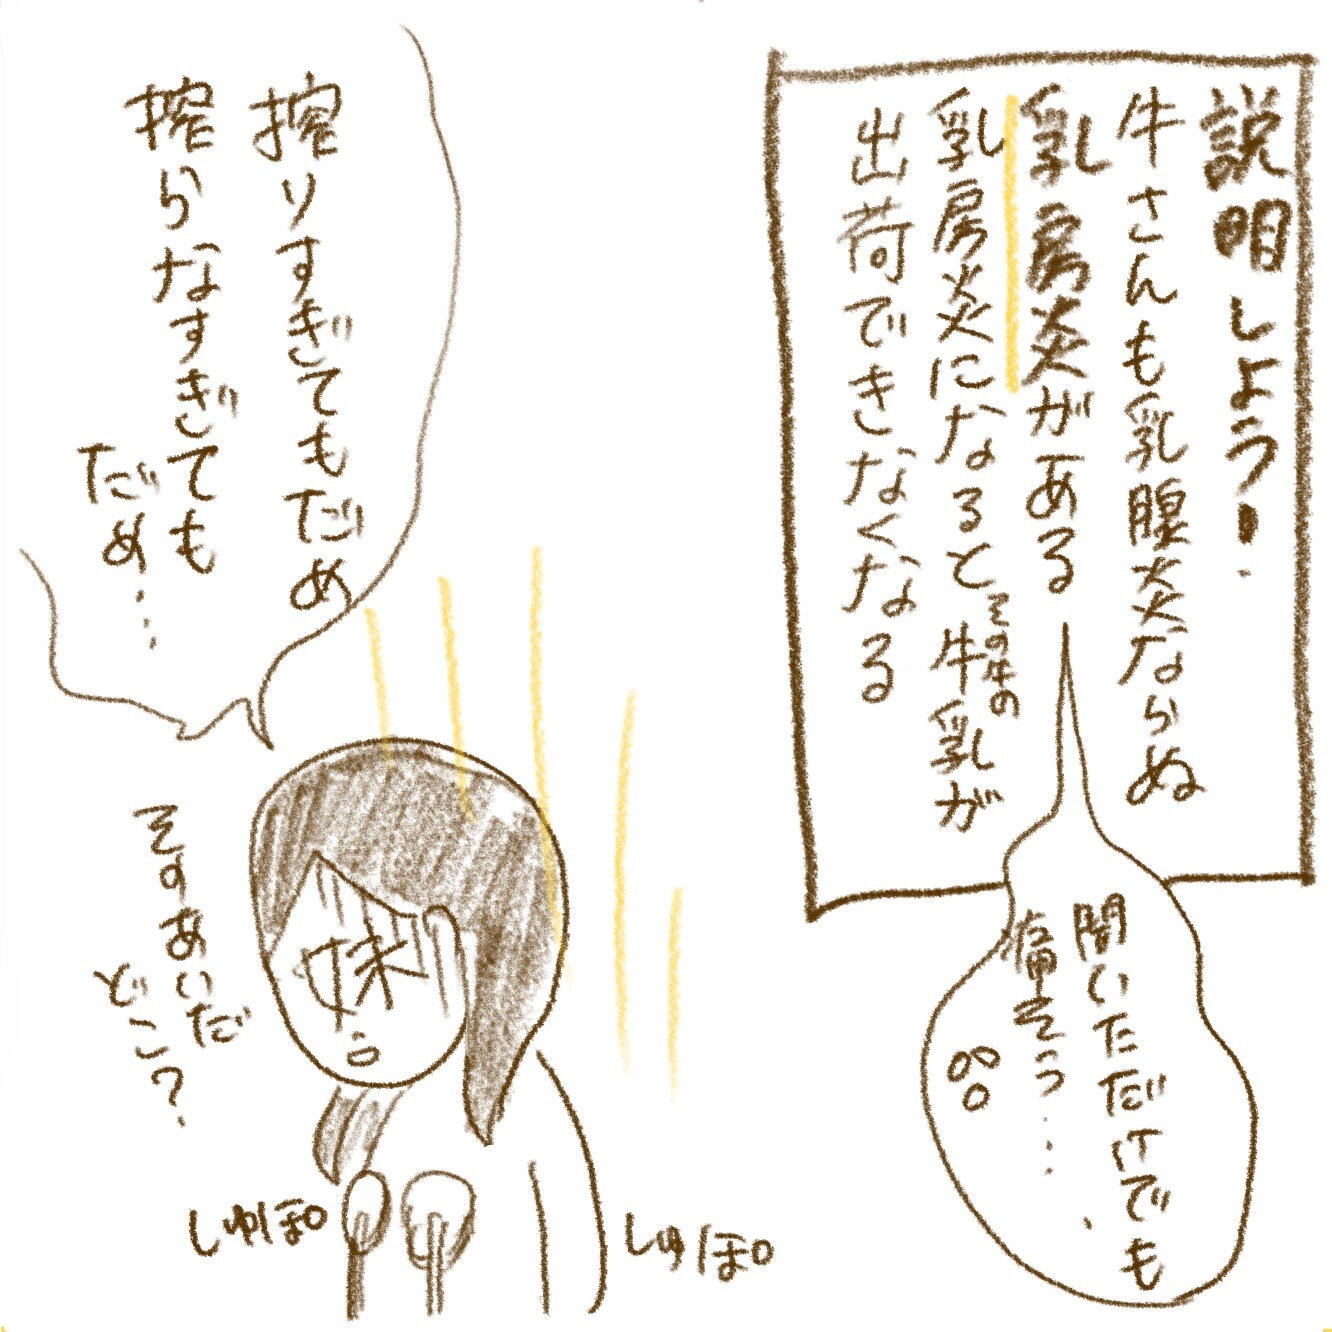 説明しよう!
牛さんも乳腺炎ならぬ
乳房炎がある
乳房炎になると牛乳が
その牛の
出荷できなくなる
聞いただけでも
痛そう…
搾りすぎてもだめ
搾らなすぎても
だめ…
妹
そのあいだ
どこ?
しゅぽ
しゅぽ